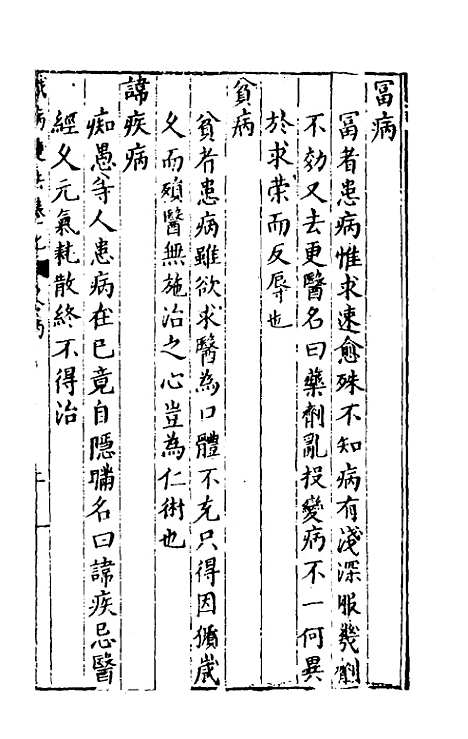 冨病
冨者患病惟求速愈殊不知病有淺深服幾劑
不効又去更醫名曰藥劑亂投變病不一何異
於求荣而反辱也
貧病
貧者患病雖欲求醫為口體不充只得因循歲
久而殞醫無施治之心豈為仁術也
諱疾病
痴愚等人患病在已竟自隱瞞名曰諱疾忌醫
經久元氣耗散終不得治